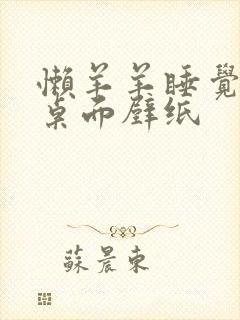 懒羊羊睡覺
桌面壁纸
蘇晨東